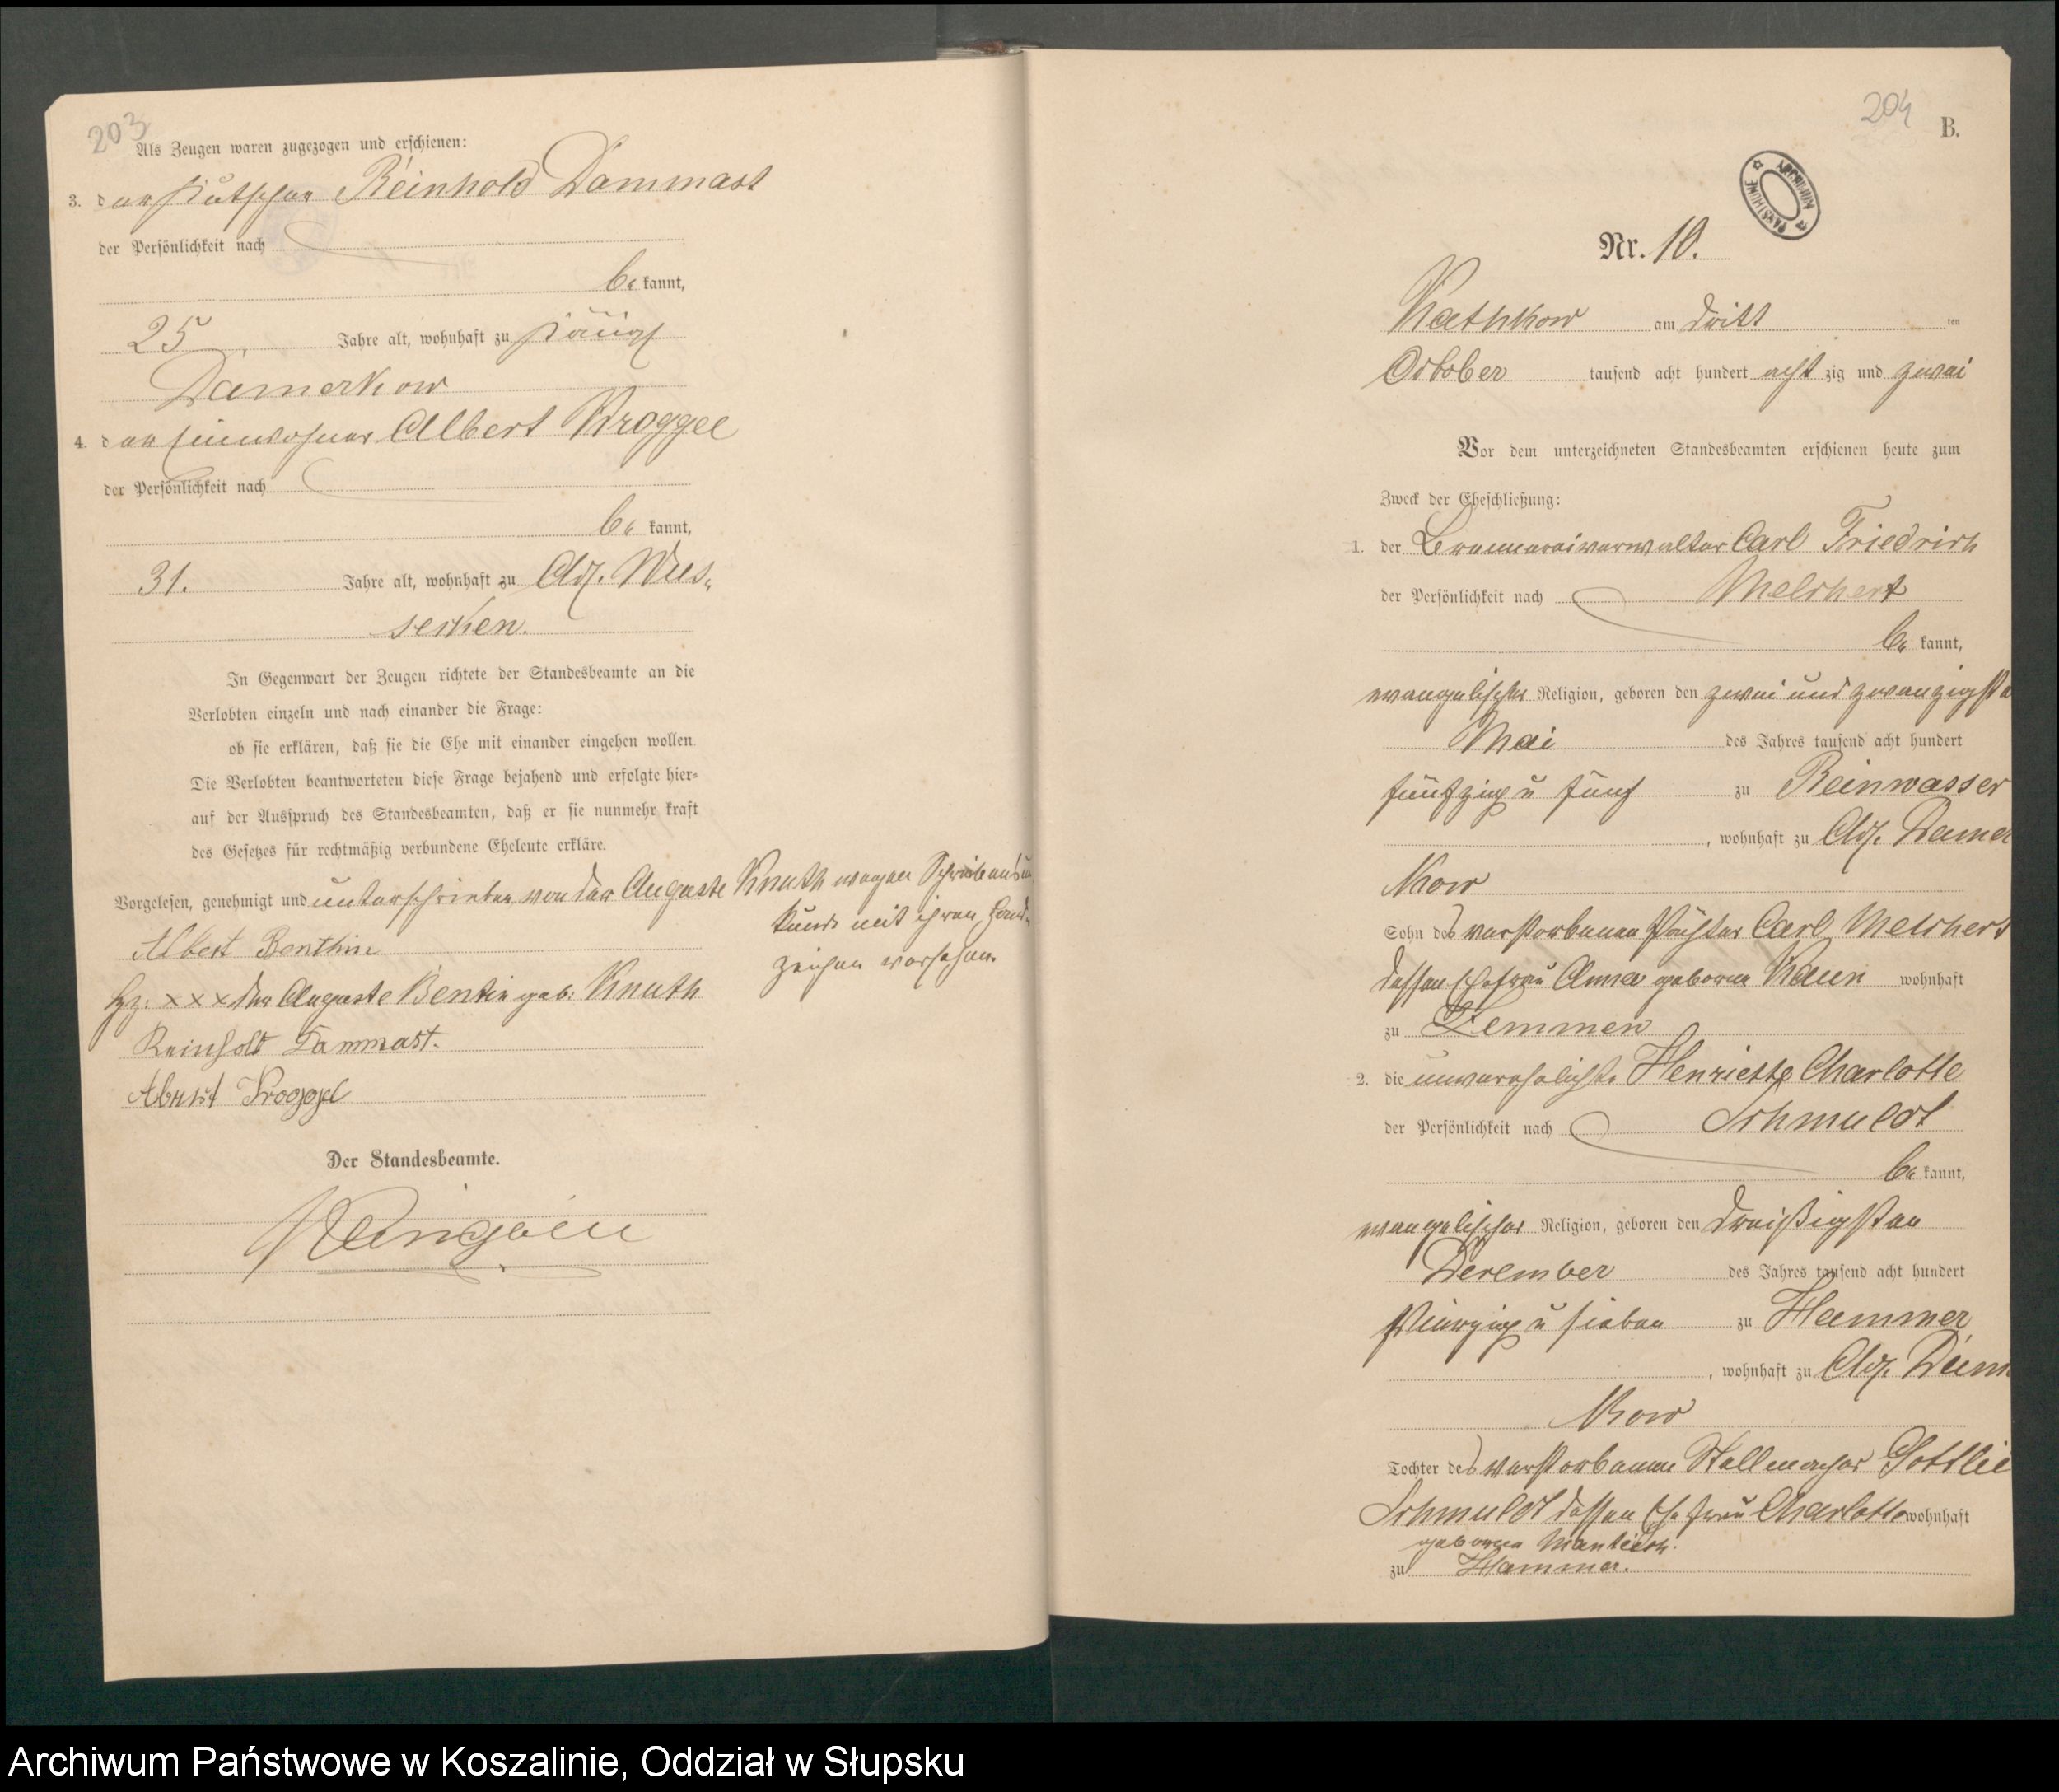 203
Als Zeugen waren zugezogen und erschienen:
3. der Kutscher Reinhold Dammast
der Persönlichkeit nach
be kannt,
25 Jahre alt, wohnhaft zu
Damerkow
4. der Einwohner Albert Kroggel
der Persönlichkeit nach
be kannt,
31. Jahre alt, wohnhaft zu Adl. Wus-
seken.
In Gegenwart der Zeugen richtete der Standesbeamte an die
Verlobten einzeln und nach einander die Frage:
ob sie erklären, daß sie die Ehe mit einander eingehen wollen
Die Verlobten beantworteten diese Frage bejahend und erfolgte hier-
auf der Ausspruch des Standesbeamten, daß er sie nunmehr kraft
des Gesetzes für rechtmäßig verbundene Eheleute erkläre.
Vorgelesen, genehmigt und unterschrieben von der Auguste Knuth wegen Schreibensun
kunde mit ihren Hand-
zeichen versehen.
Albert Benthin
Hz: xxx der Auguste Bentin geb: Knuth
Reinhold Dammast.
Albert Kroggel
Der Standesbeamte.
204
B.
ARCHIWUM PAŃSTWOWE
Nr. 10.
Kathkow am dritt ten
October tausend acht hundert acht zig und zwei
Vor dem unterzeichneten Standesbeamten erschienen heute zum
Zweck der Eheschließung:
1. der Brennereiverwalter Carl Friedrich
der Persönlichkeit nach Melchert
be kannt,
evangelischer Religion, geboren den zwei und zwanzigste
Mai des Jahres tausend acht hundert
fünfzig u fünf zu Reinwasser
, wohnhaft zu Adl. Damer
kow
Sohn des verstorbenen Pächter Carl Melchert
dessen Ehefrau Anna geborne Kaun wohnhaft
zu Zemmen
2. die unverehelichte Henriette Charlotte
der Persönlichkeit nach Schmuldt
be kannt,
evangelischer Religion, geboren den dreißigsten
December des Jahres tausend acht hundert
vierzig u sieben zu Hammer
, wohnhaft zu Adl. Dam
kow
Tochter des verstorbenen Stellmacher Gottlie
Schmuldt dessen Ehefrau Charlotte wohnhaft
geborne
zu Hammer.
Archiwum Państwowe w Koszalinie, Oddział w Słupsku